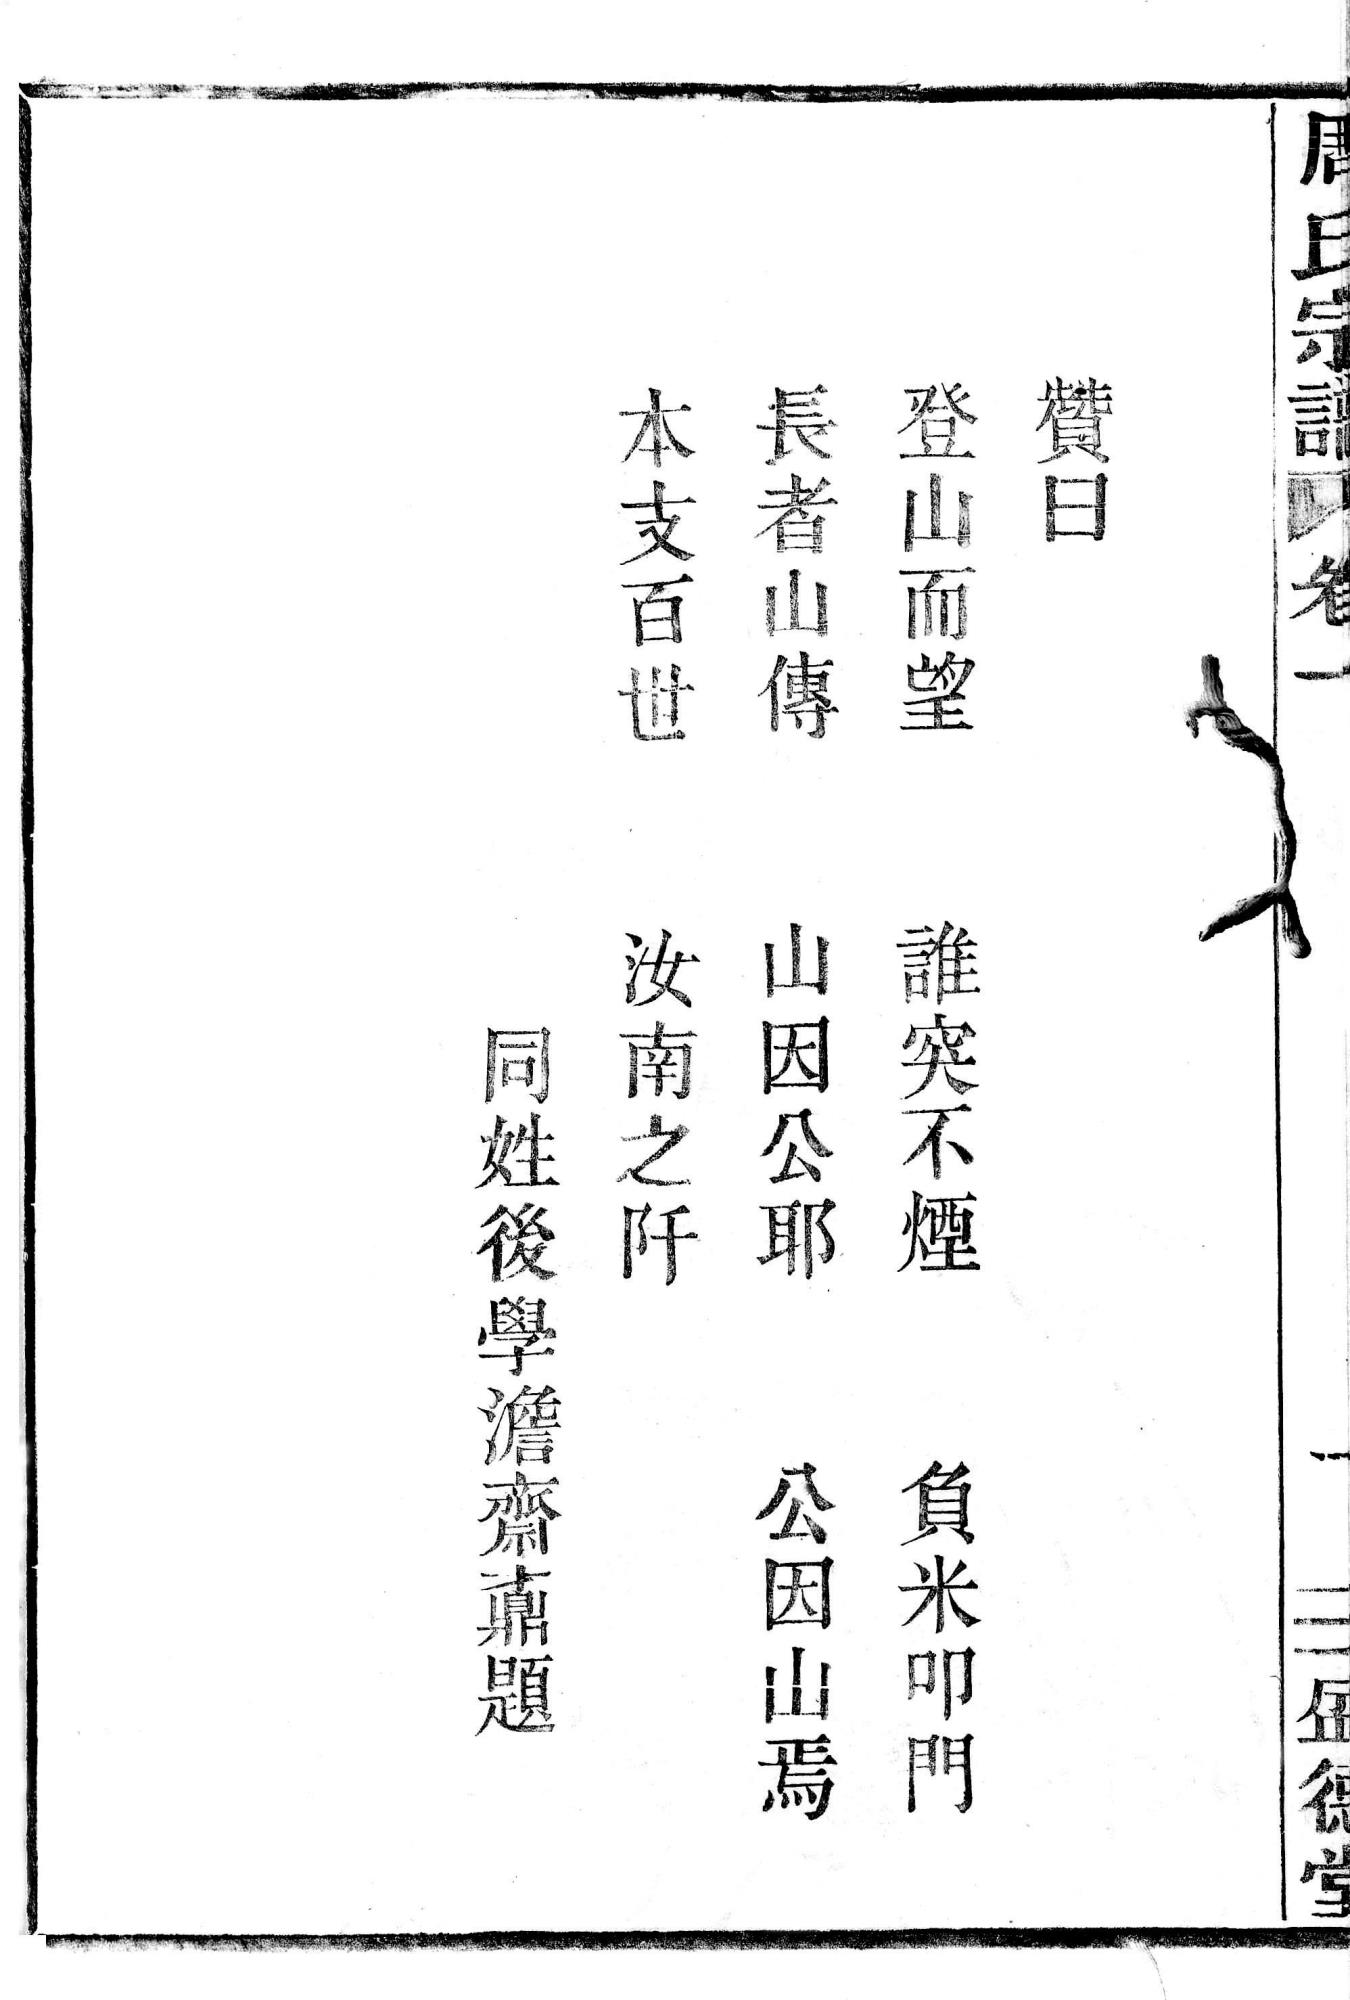 周氏宗譜 卷一 一 三 盈德堂
贊曰
登山而望 誰突不煙 負米叩門
長者山傳 山因公耶 公因山焉
本支百世 汝南之阡
同姓後學澹齋鼒題